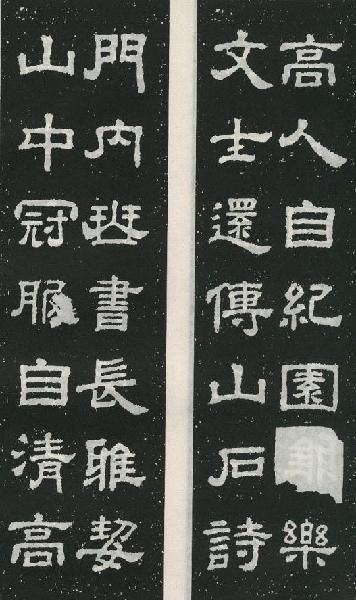 高人自紀園樂
文士還傳山石詩
門內班書長雅契
山中冠服自清高